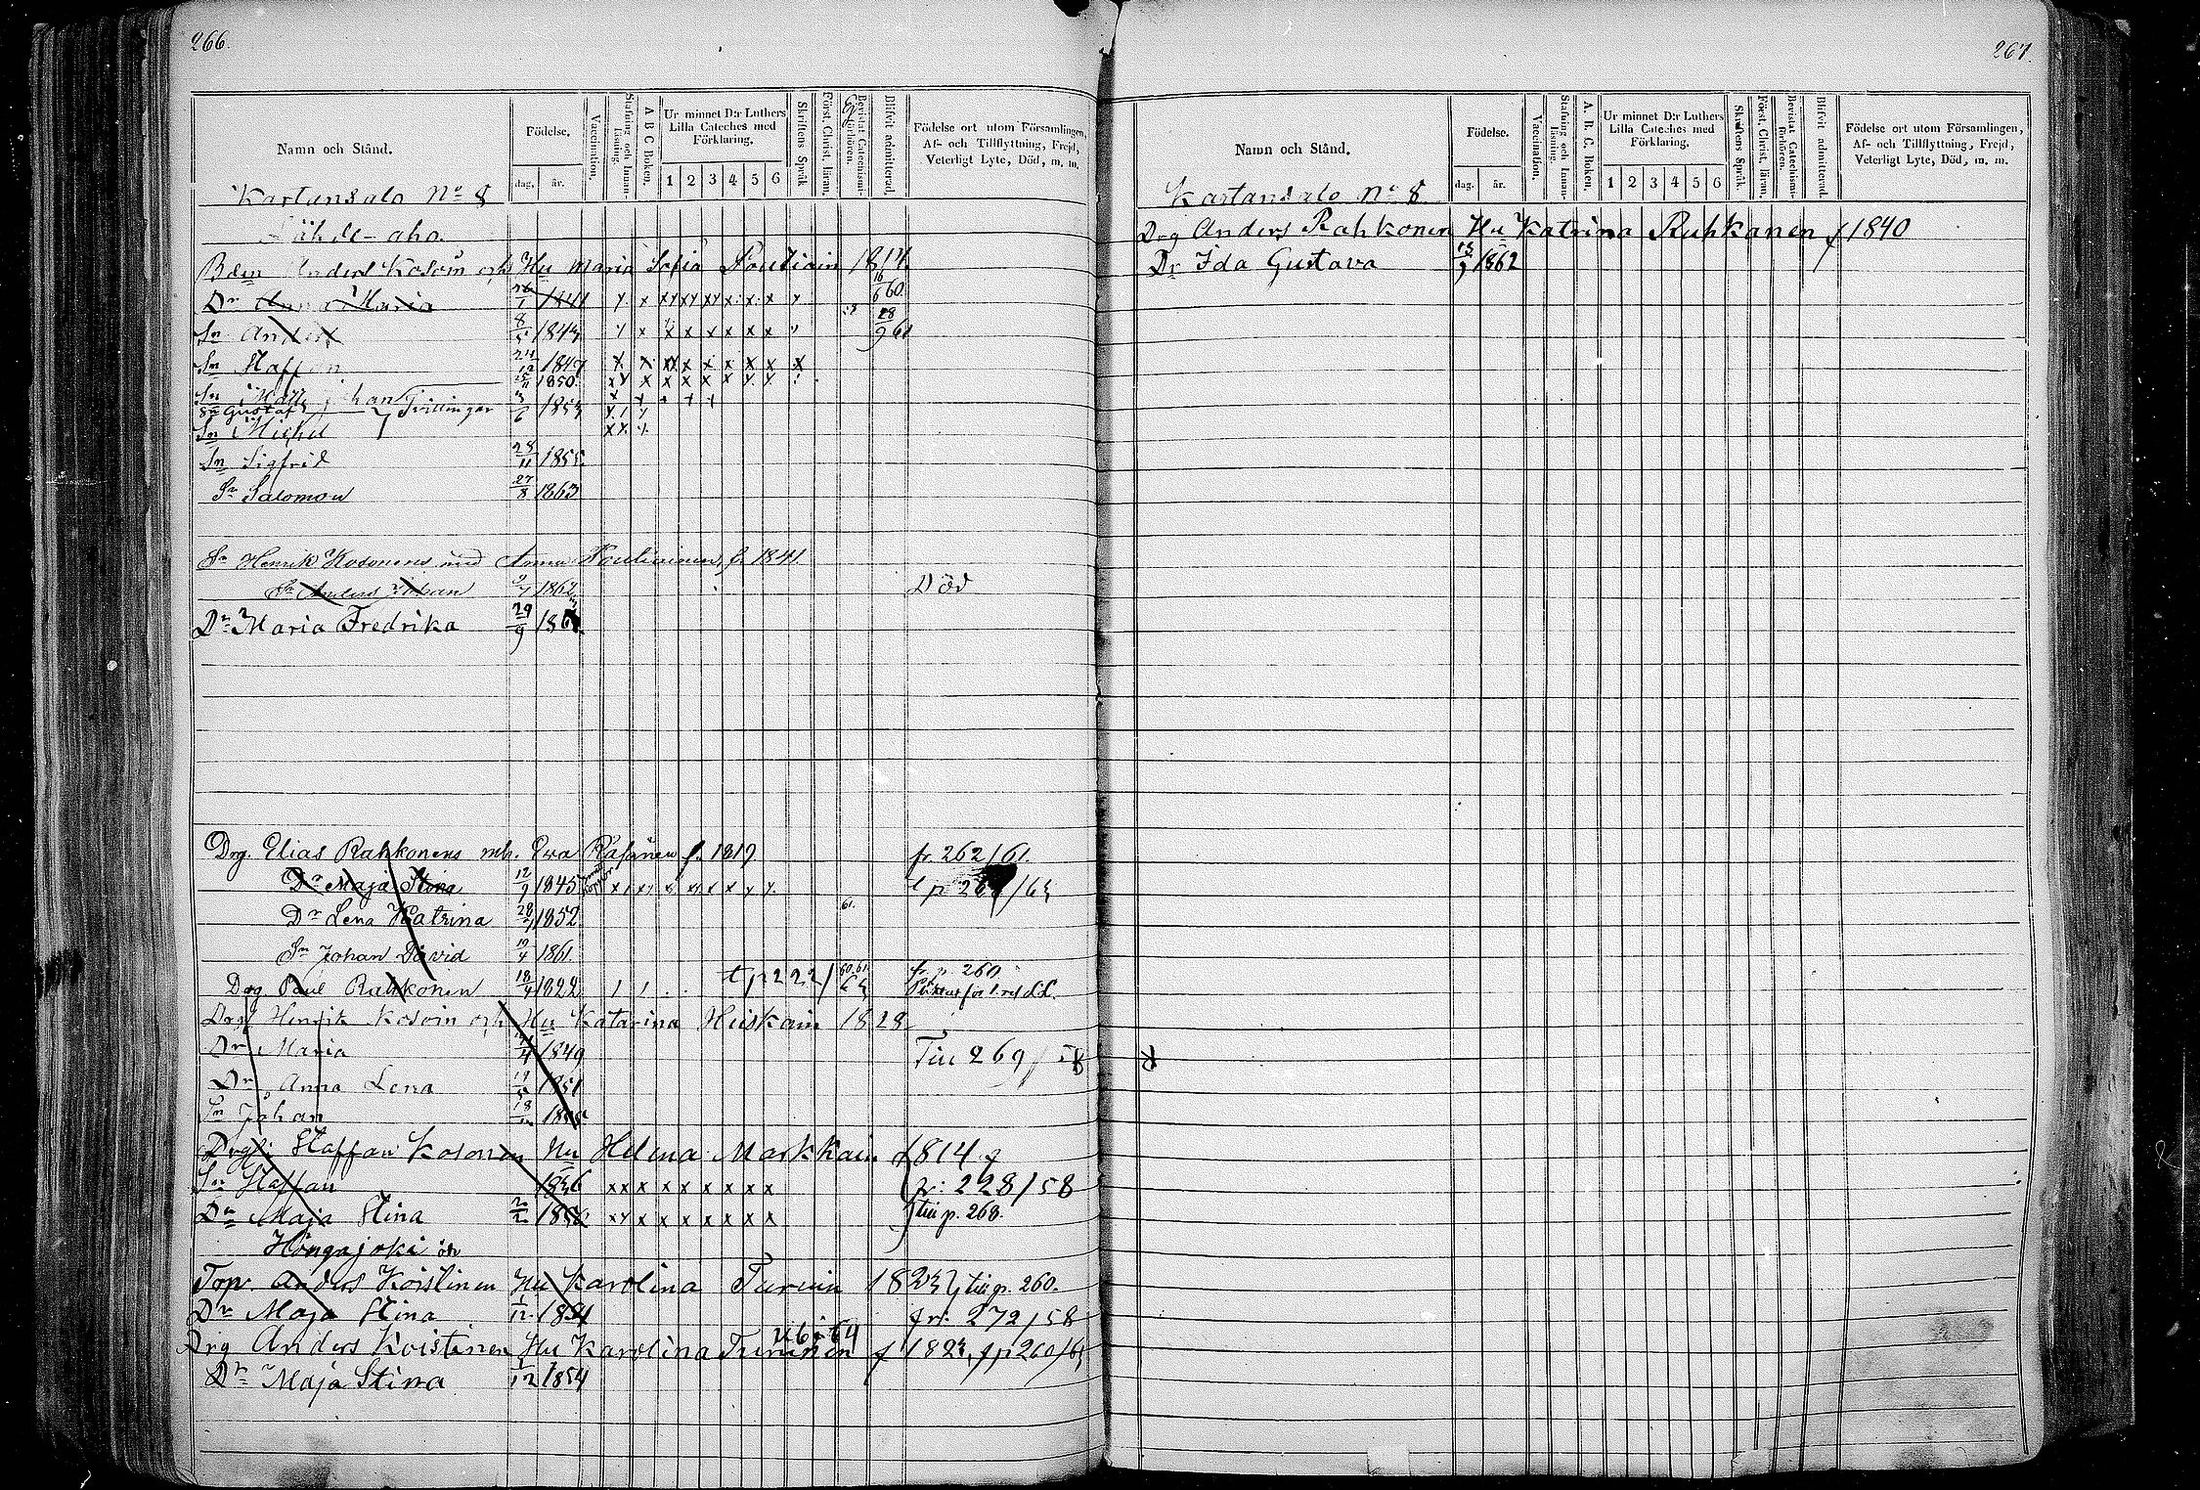 266.
Namn och Stånd.
Födelse.
dag. år.
Vaccination.
Stafning och Innan-läsning.
A B C Boken.
Ur minnet D:r Luthers Lilla Cateches med Förklaring.
1 2 3 4 5 6
Skriftens Språk
Först. Christ. läran.
Bevistat Catechismi-förhören.
Blifvit admitterad.
Födelse ort utom Församlingen, Af- och Tillflyttning, Frejd, Veterligt Lyte, Död, m. m.
Kartansalo No 8
Bdn Anders Kosoin och Hu Maria Sofia
Dr Anna Maria 1841 x x x x x x x 16/6 60
Sn Anders 8/5 1843 x x x x x x x 28/9 61
Sn Staffan 24/12 1847 x x x x x x x x
25/11 1850 x x x x x x x x
Sn Matts Johan
Sn Gustaf Trillingar 3/6 1853
Sn Michel
Sn Sigfrid 28/11 1855
Sn Salomon 27/8 1863
Sn Henrik Kosonens med Anna f. 1841.
Sn Anders Johan 1862 Död
Dr Maria Fredrika 29/9
Drg. Elias Rahkonens mh. Eva Räsänen f. 1819 fr. 262/61.
Dr Maja Stina 12/9 1845 x x x x x x x
Dr Lena Katrina 1852 61.
Sn Johan David 19/4 1861
Drg Paul Rahkonen 18/4 1822 t p 222/63 fr. p. 260
Drg Henrik Kosoin och Hu Katarina Heiskain 1828
Dr Maria 1849 Till 269/58
Dr Anna Lena 1851
Sn Johan
Drg Staffan Kosonen Hu Helena Markkain 1814
Sn Staffan 1836 x x x x x x x x 228/58
Dr Maja Stina x x x x x x x x till p. 268.
Hongajoki
Torp Anders Koistinen Hu Karolina Turuin 1823 till p. 260.
Dr Maja Stina 1/12 fr: 272/58
Drg Anders Koistinen Hu Karolina Turunen f 1823, f p 260/63
Dr Maja Stina 1/12 1854
267.
Namn och Stånd.
Födelse.
dag. år.
Vaccination.
Stafning och Innan-läsning.
A. B. C. Boken.
Ur minnet D:r Luthers Lilla Cateches med Förklaring.
1 2 3 4 5 6
Skriftens Språk.
Först. Christ. läran.
Bevistat Catechismi-förhören.
Blifvit admitterad.
Födelse ort utom Församlingen, Af- och Tillflyttning, Frejd, Veterligt Lyte, Död, m. m.
Kartansalo No 8
Drg Anders Rahkonen Hu Katrina Ruhkanen f 1840
Dr Ida Gustava 13/9 1862